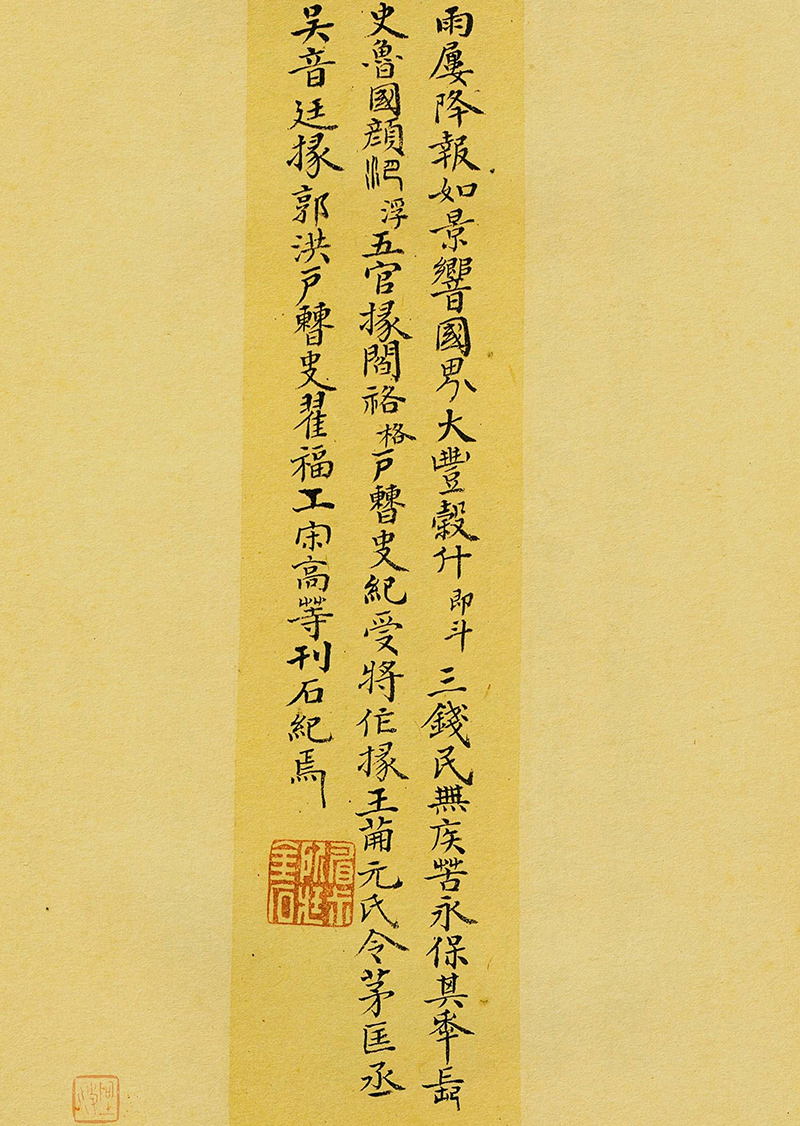 雨屢降報如景響國界大豐穀什即斗三錢民無疾苦永保其秊長
史魯國顔浮五官掾閻袼格戸曹史紀受將作掾王莆元氏令茅匡丞
吴音廷掾郭洪戸曹史翟福工宋高等刊石紀焉